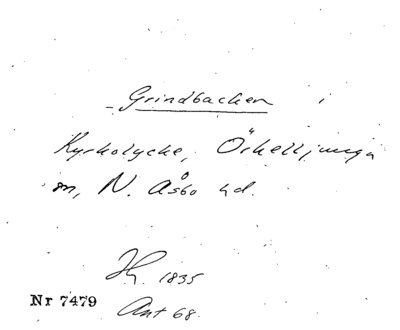 Grindbacken
Kyrkolycke, Örkelljunga
sn, N. Åsbo hd.
Hy. 1835
Nr 7479
Ant 68.